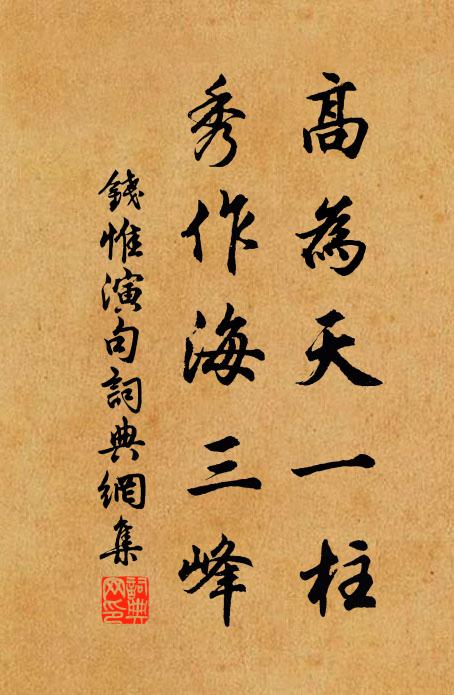 高為天一柱
秀作海三峰
錢惟演句詞典網集
詞典网印